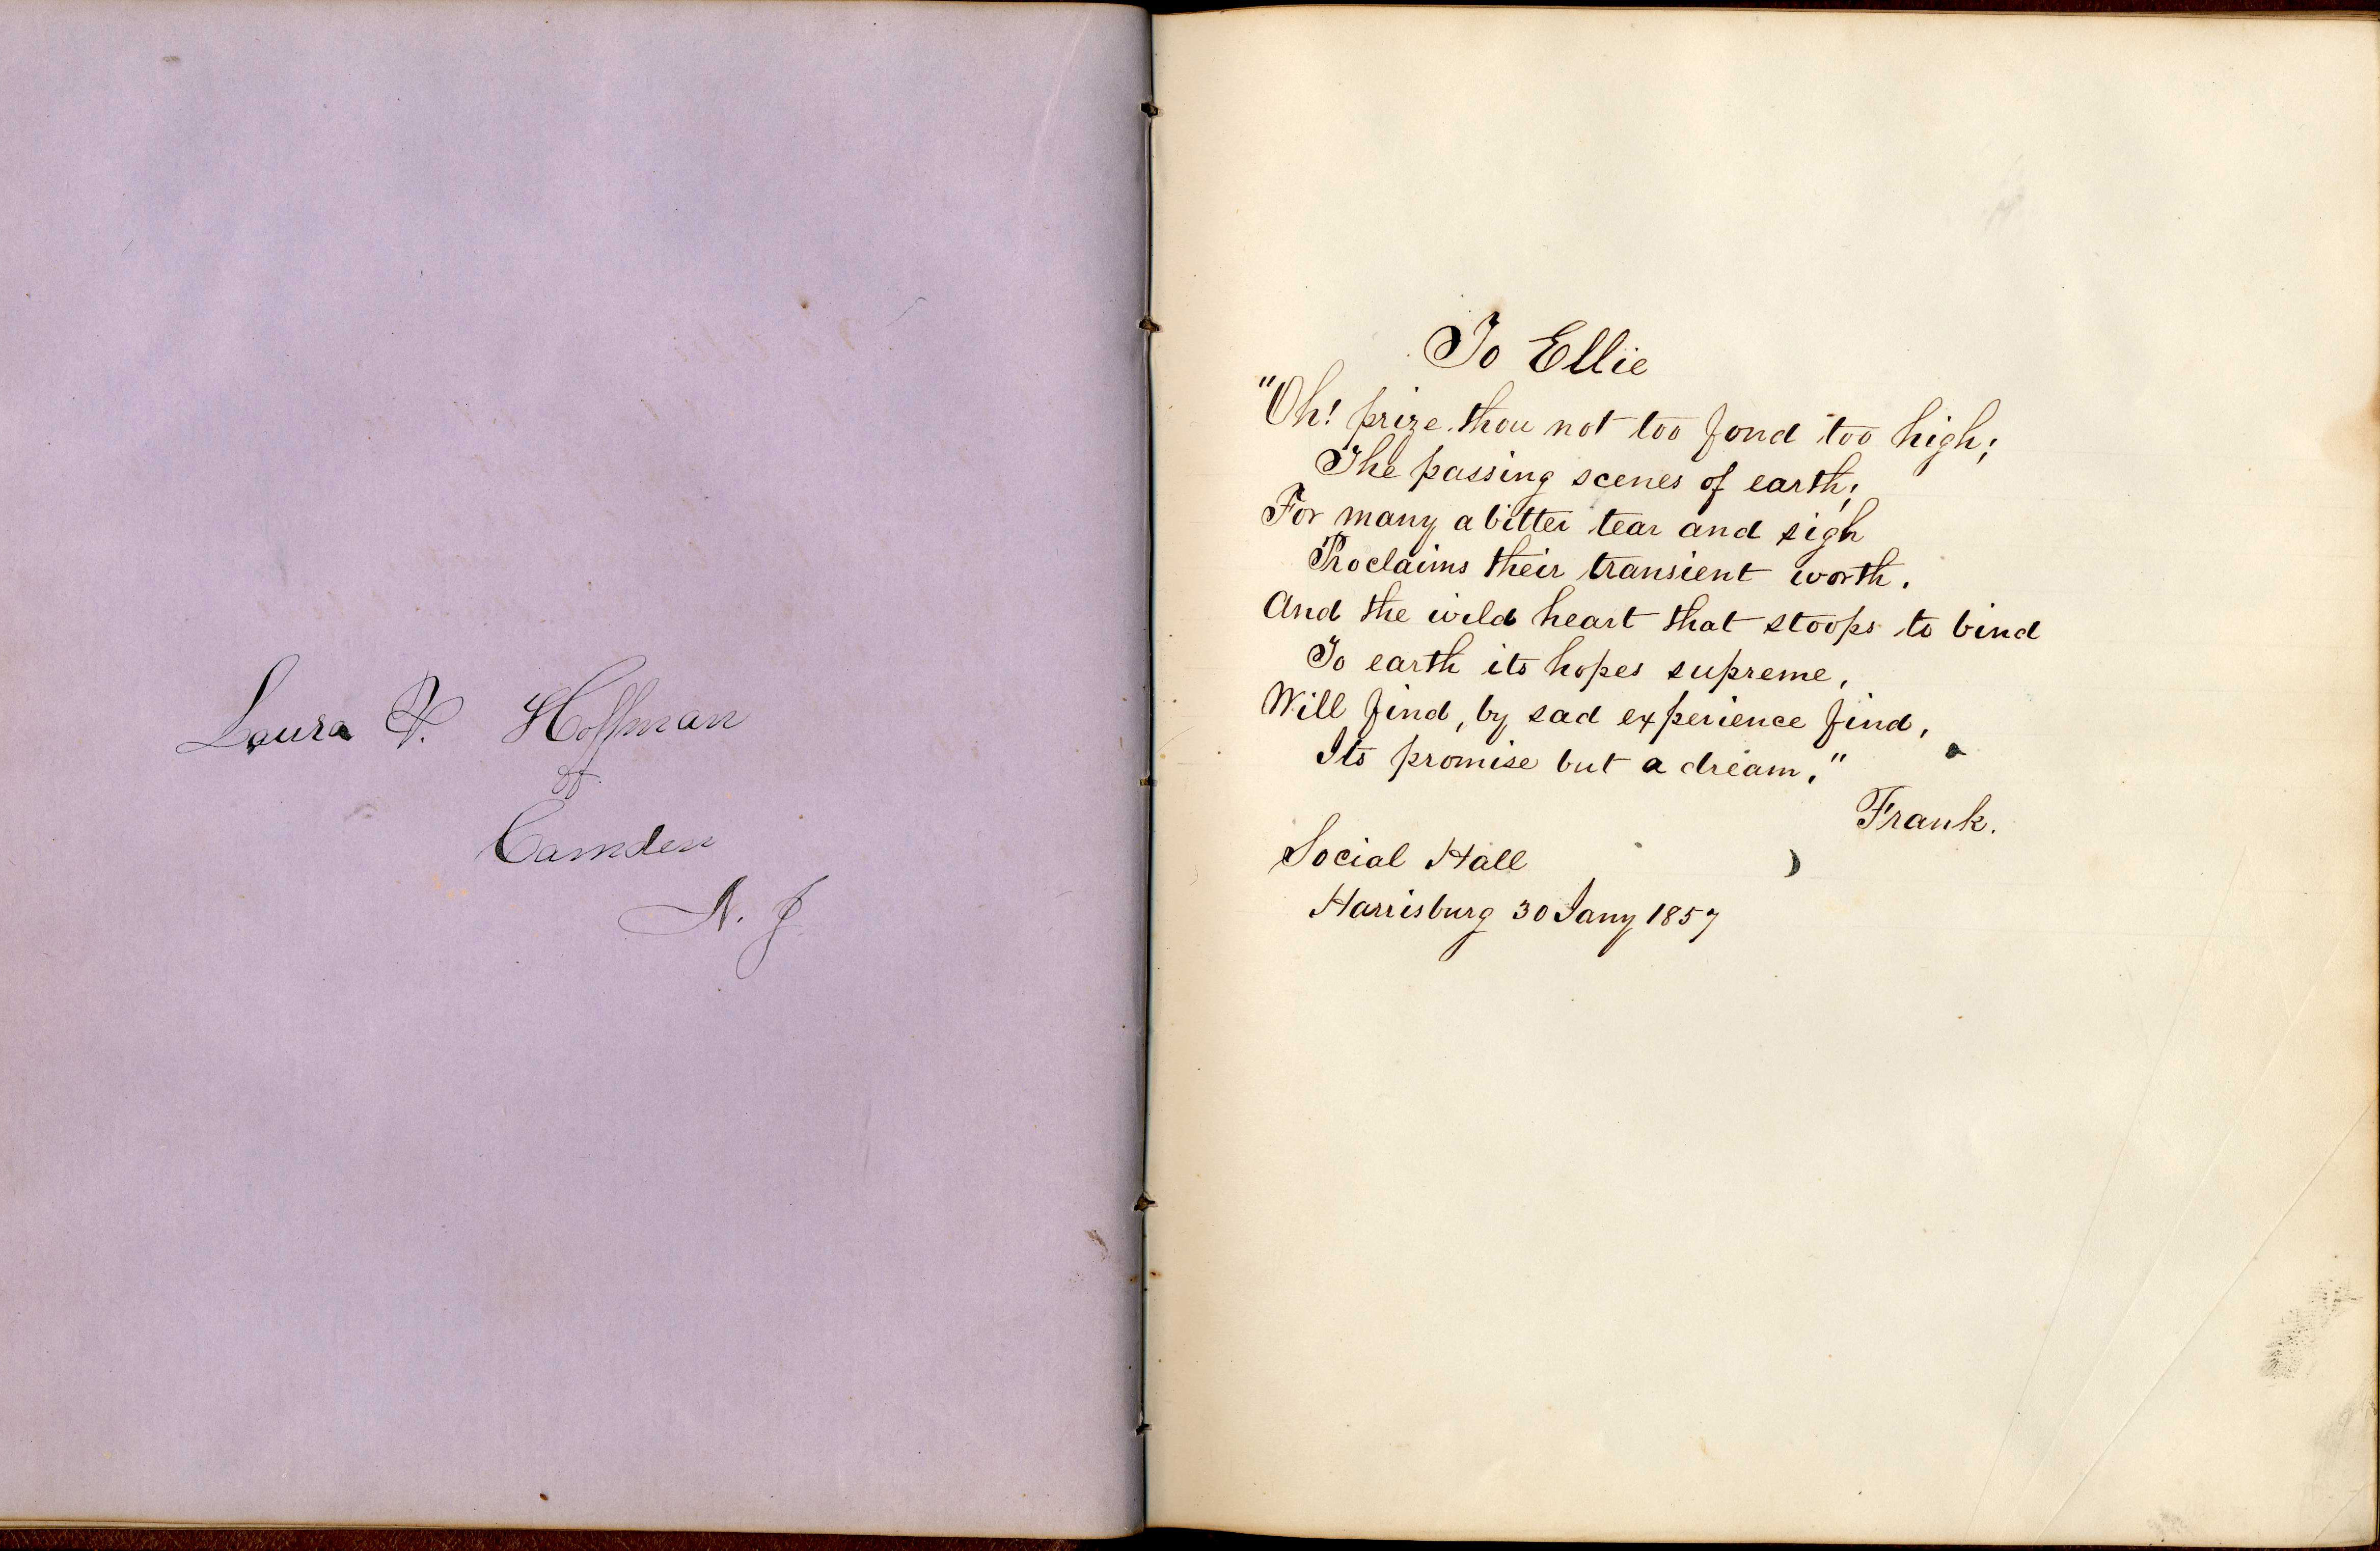 Laura V. Hoffman
of
Camden
N. J
To Ellie
"Oh! prize thou not too fond too high;
The passing scenes of earth;
For many a bitter tear and sigh
Proclaims their transient worth.
And the wild heart that stoops to bind
To earth its hopes supreme,
Will find, by sad experience find,
Its promise but a dream."
Frank.
Social Hall
Harrisburg 30 Jany 1857